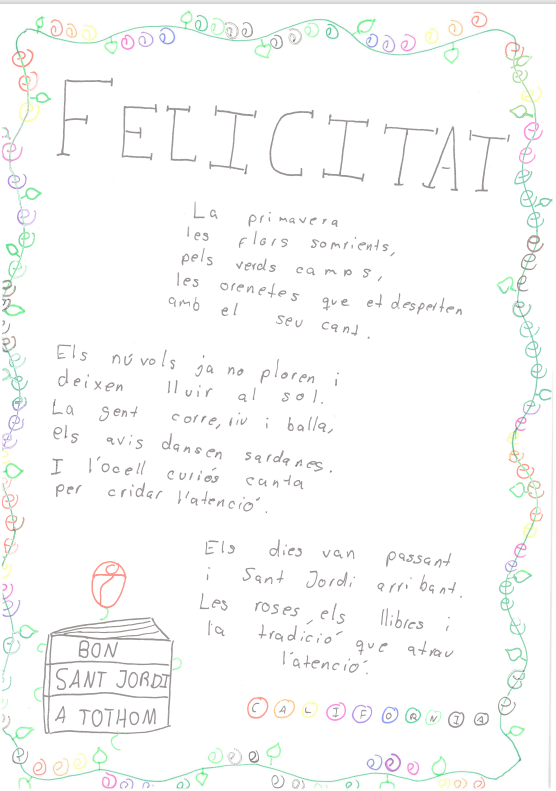 FELICITAT
La primavera
les flors somrients,
pels verds camps,
les orenetes que et desperten
amb el seu cant.
Els núvols ja no ploren i
deixen lluir al sol.
La gent corre, riu i balla,
els avis dansen sardanes.
I l'ocell curiós canta
per cridar l'atenció.
Els dies van passant
i Sant Jordi arribant.
Les roses, els llibres i
la tradició que atrau
l'atenció.
BON
SANT JORDI
A TOTHOM
CALIFORNIA